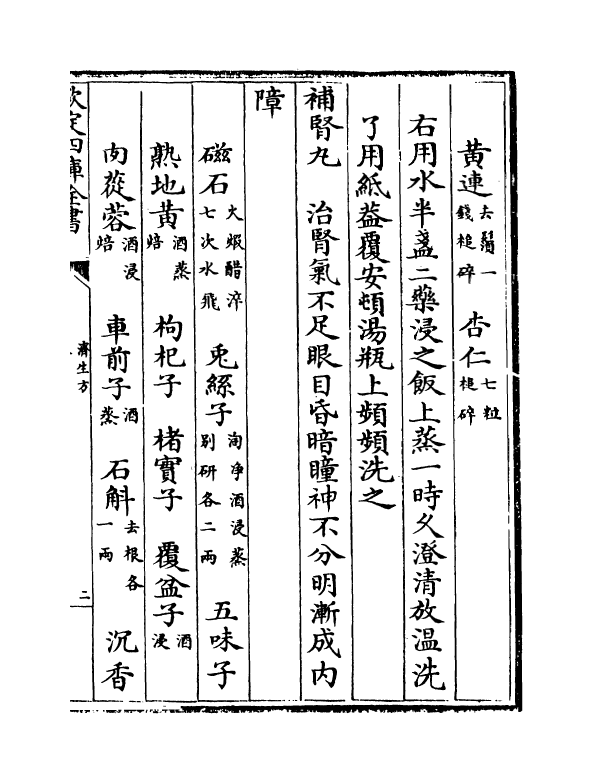 黄連去鬚一錢槌碎　杏仁七粒槌碎
右用水半盞二藥浸之飯上蒸一時久澄清放温洗
了用紙葢覆安頓湯瓶上頻頻洗之
補腎丸　治腎氣不足眼目昏暗瞳神不分明漸成内
障
磁石火煅醋淬七次水飛　兎絲子淘浄酒浸蒸别研各二兩　五味子
熟地黄酒蒸焙　枸杞子　楮實子　覆盆子酒浸
肉蓯蓉酒浸焙　車前子酒蒸　石斛去根各一兩　沉香
欽定四庫全書
濟生方
二